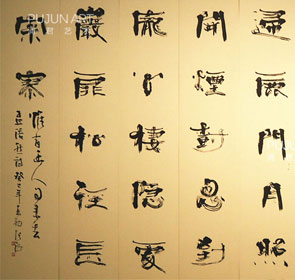 PUJUN ART
歸鹿門月照
開煙樹忽到
龐公棲隱處
巖扉松徑長
寂寥
惟有幽人自來去
孟浩然詩 癸巳年